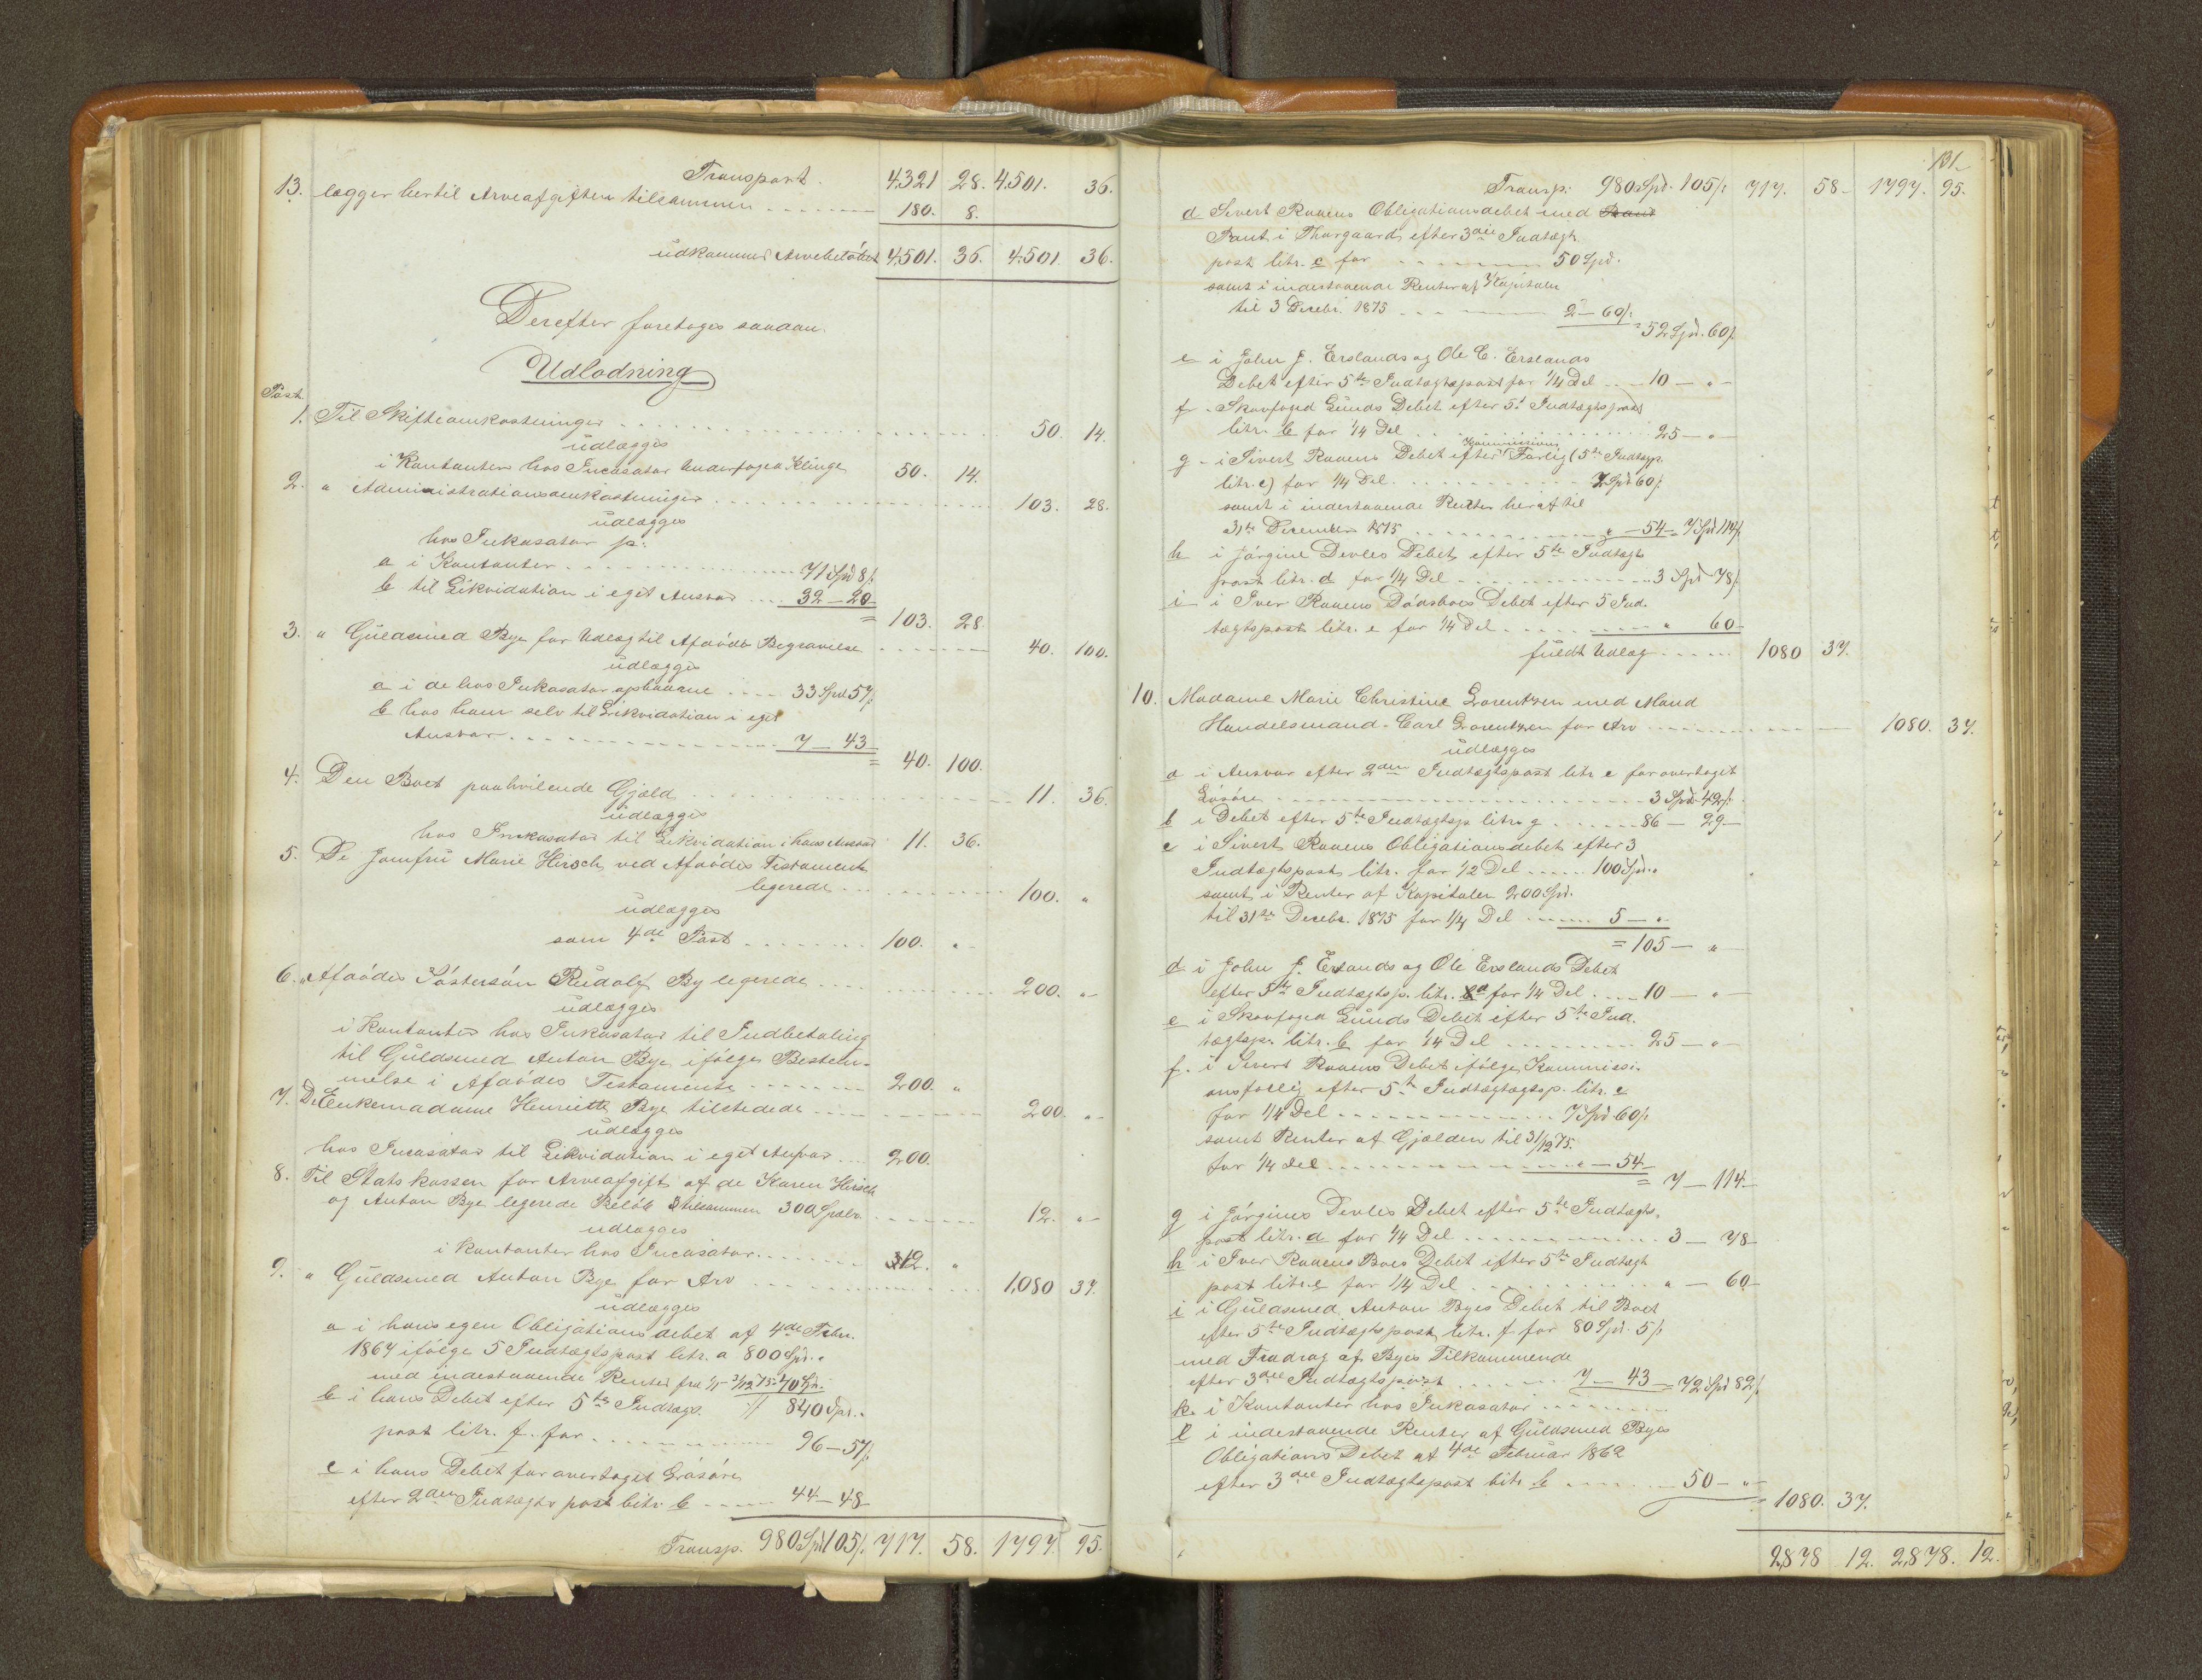 Transport 4321 28. 4501. 36.
13. lægger hertil Arveafgiften tilsammen 180. 8.
udkommer Arvebeløbet 4501. 36. 4501 36.
Derefter foretoges saadan
Udlodning
Post.
1. Til Skifteomkostninger 50. 14.
udlægges
i Kontanter hos Incasator Underfoged Klinge 50. 14.
2. " Administrationsomkostninger 103. 28.
udlægges
hos Inkasator p:
a i Kontanter 71 Spd 8/:
b til Likvidation i eget Ansvar 32 – 20
= 103. 28.
3. " Guldsmed Bye for Udlæg til Afdødes Begravelse 40. 100.
udlægges
a i de hos Inkasator opbevarne 33 Spd 57/:
b hos ham selv til Likvidation i eget
Ansvar 7 – 43
= 40. 100.
4. Den Boet paahvilende Gjæld 11. 36.
udlægges
hos Inkasator til Likvidation i hans Ansvar 11. 36.
5. De Jomfru Marie Hirsch ved Afdødes Testament
legerede 100. "
udlægges
som 4de Post 100. "
6. " Afdødes Søstersøn Rudolf By legerede 200. "
udlægges
i Kontanter hos Inkasator til Indbetaling
til Guldsmed Anton Bye ifølge Bestem-
melse i Afdødes Testamente 200. "
7. De Enkemadame Henriette Bye tilstedede 200. "
udlægges
hos Incasator til Likvidation i eget Ansvar 200.
8. Til Statskassen for Arveafgift af de Karen Hirsch
og Anton Bye legerede Beløb tilsammen 300 Spdlr 12. "
udlægges
i Kontanter hos Incasator 12. "
9. " Guldsmed Anton Bye for Arv 1,080 37.
udlægges
a i hans egen Obligationsdebet af 4de Febr.
1864 ifølge 5 Indtægtspost litr. a 800 Spd. "
med indestaaende Renter fra 1/1 – 31/12 75. 40 Spd.
// 840 Spd. "
b i hans Debet efter 5te Indtægs.
post litr. f. for 96 – 57/:
c i hans Debet for overtaget Løsøre
efter 2den Indtægts post litr b 44 – 48
Transp. 980 Spd 105/: 717. 58. 1797. 95.
131.
Transp: 980 Spd. 105/: 717. 58 1797. 95.
d Sivert Raaens Obligationsdebet med Pant
Pant i Thorgaard efter 3die Indtægts
post litr. c for 50 Spd.
samt i indestaaende Renter af Kapitalen
til 3 Decebr. 1875 2 – 60/:
= 52 Spd. 60/:
e i John J. Erslands og Ole E. Erslands
Debet efter 5te Indtægtspost for 1/4 Del 10 – " –
f - Skovfoged Lunds Debet efter 5t Indtægtspost
litr. b for 1/4 Del 25 – " –
g - i Sivert Raaens Debet efter Kommissions Forlig (5te Indtægp.
litr. c) for 1/4 Del 7 Spd 60/:
samt i indestaaende Renter heraf til
31te December 1875 " – 54 = 7 Spd 114/:
h i Jørgine Devles Debet efter 5te Indtægts
post litr. d for 1/4 Del 3 Spd 78/:
i i Iver Raaens Dødsboes Debet efter 5 Ind.
tægtspost litr. e for 1/4 Del " 60 –
fuldt Udlæg 1080 37.
10. Madame Marie Christine Lorentzen med Mand
Handelsmand Carl Lorentzen for Arv 1080. 37.
udlægges
a i Ansvar efter 2den Indtægtspost litr c for overtaget
Løsøre 3 Spd. 42/:
b i Debet efter 5te Indtægtsp. litr. g 86 – 29 –
c i Sivert Raaens Obligationsdebet efter 3
Indtægtspost litr. for 1/2 Del 100 Spd. "
samt i Renter af Kapitalen 200 Spd.
til 31te Decebr. 1875 for 1/4 Del 5 – "
= 105 – "
d i John J. Erslands og Ole Erslands Debet
efter 5te Indtægtsp. litr. a for 1/4 Del 10 – " –
e i Skovfoged Lunds Debet efter 5te Ind.
tægtsp. litr. b for 1/4 Del 25 – " –
f. i Sivert Raaens Debet ifølge Kommissi-
onsforlig efter 5te Indtægtsgtsp. litr. c
for 1/4 Del 7 Spd 60/:
samt Renter af Gjælden til 31/12 75.
for 1/4 del " – 54
= 7 – 114 –
g i Jørgines Devles Debet efter 5te Indtægts.
post litr. d for 1/4 Del 3 – 78
h i Iver Raaens Boes Debet efter 5te Indtægt
post litr. e for 1/4 Del " – 60 –
i i Guldsmed Anton Byes Debet til Boet
efter 5te Indtægtspost litr. f for 80 Spd. 5/:
med Fradrag af Byes Tilkommende
efter 3die Indtægtspost 7 – 43 = 72 Spd 82/:
k. i Kontanter hos Inkasator
l i indestaaende Renter af Guldsmed Byes
Obligations Debet af 4de Februar 1862
efter 3die Indtægtspost litr b 50 – "
= 1080. 37.
2878 12. 2,878. 12.